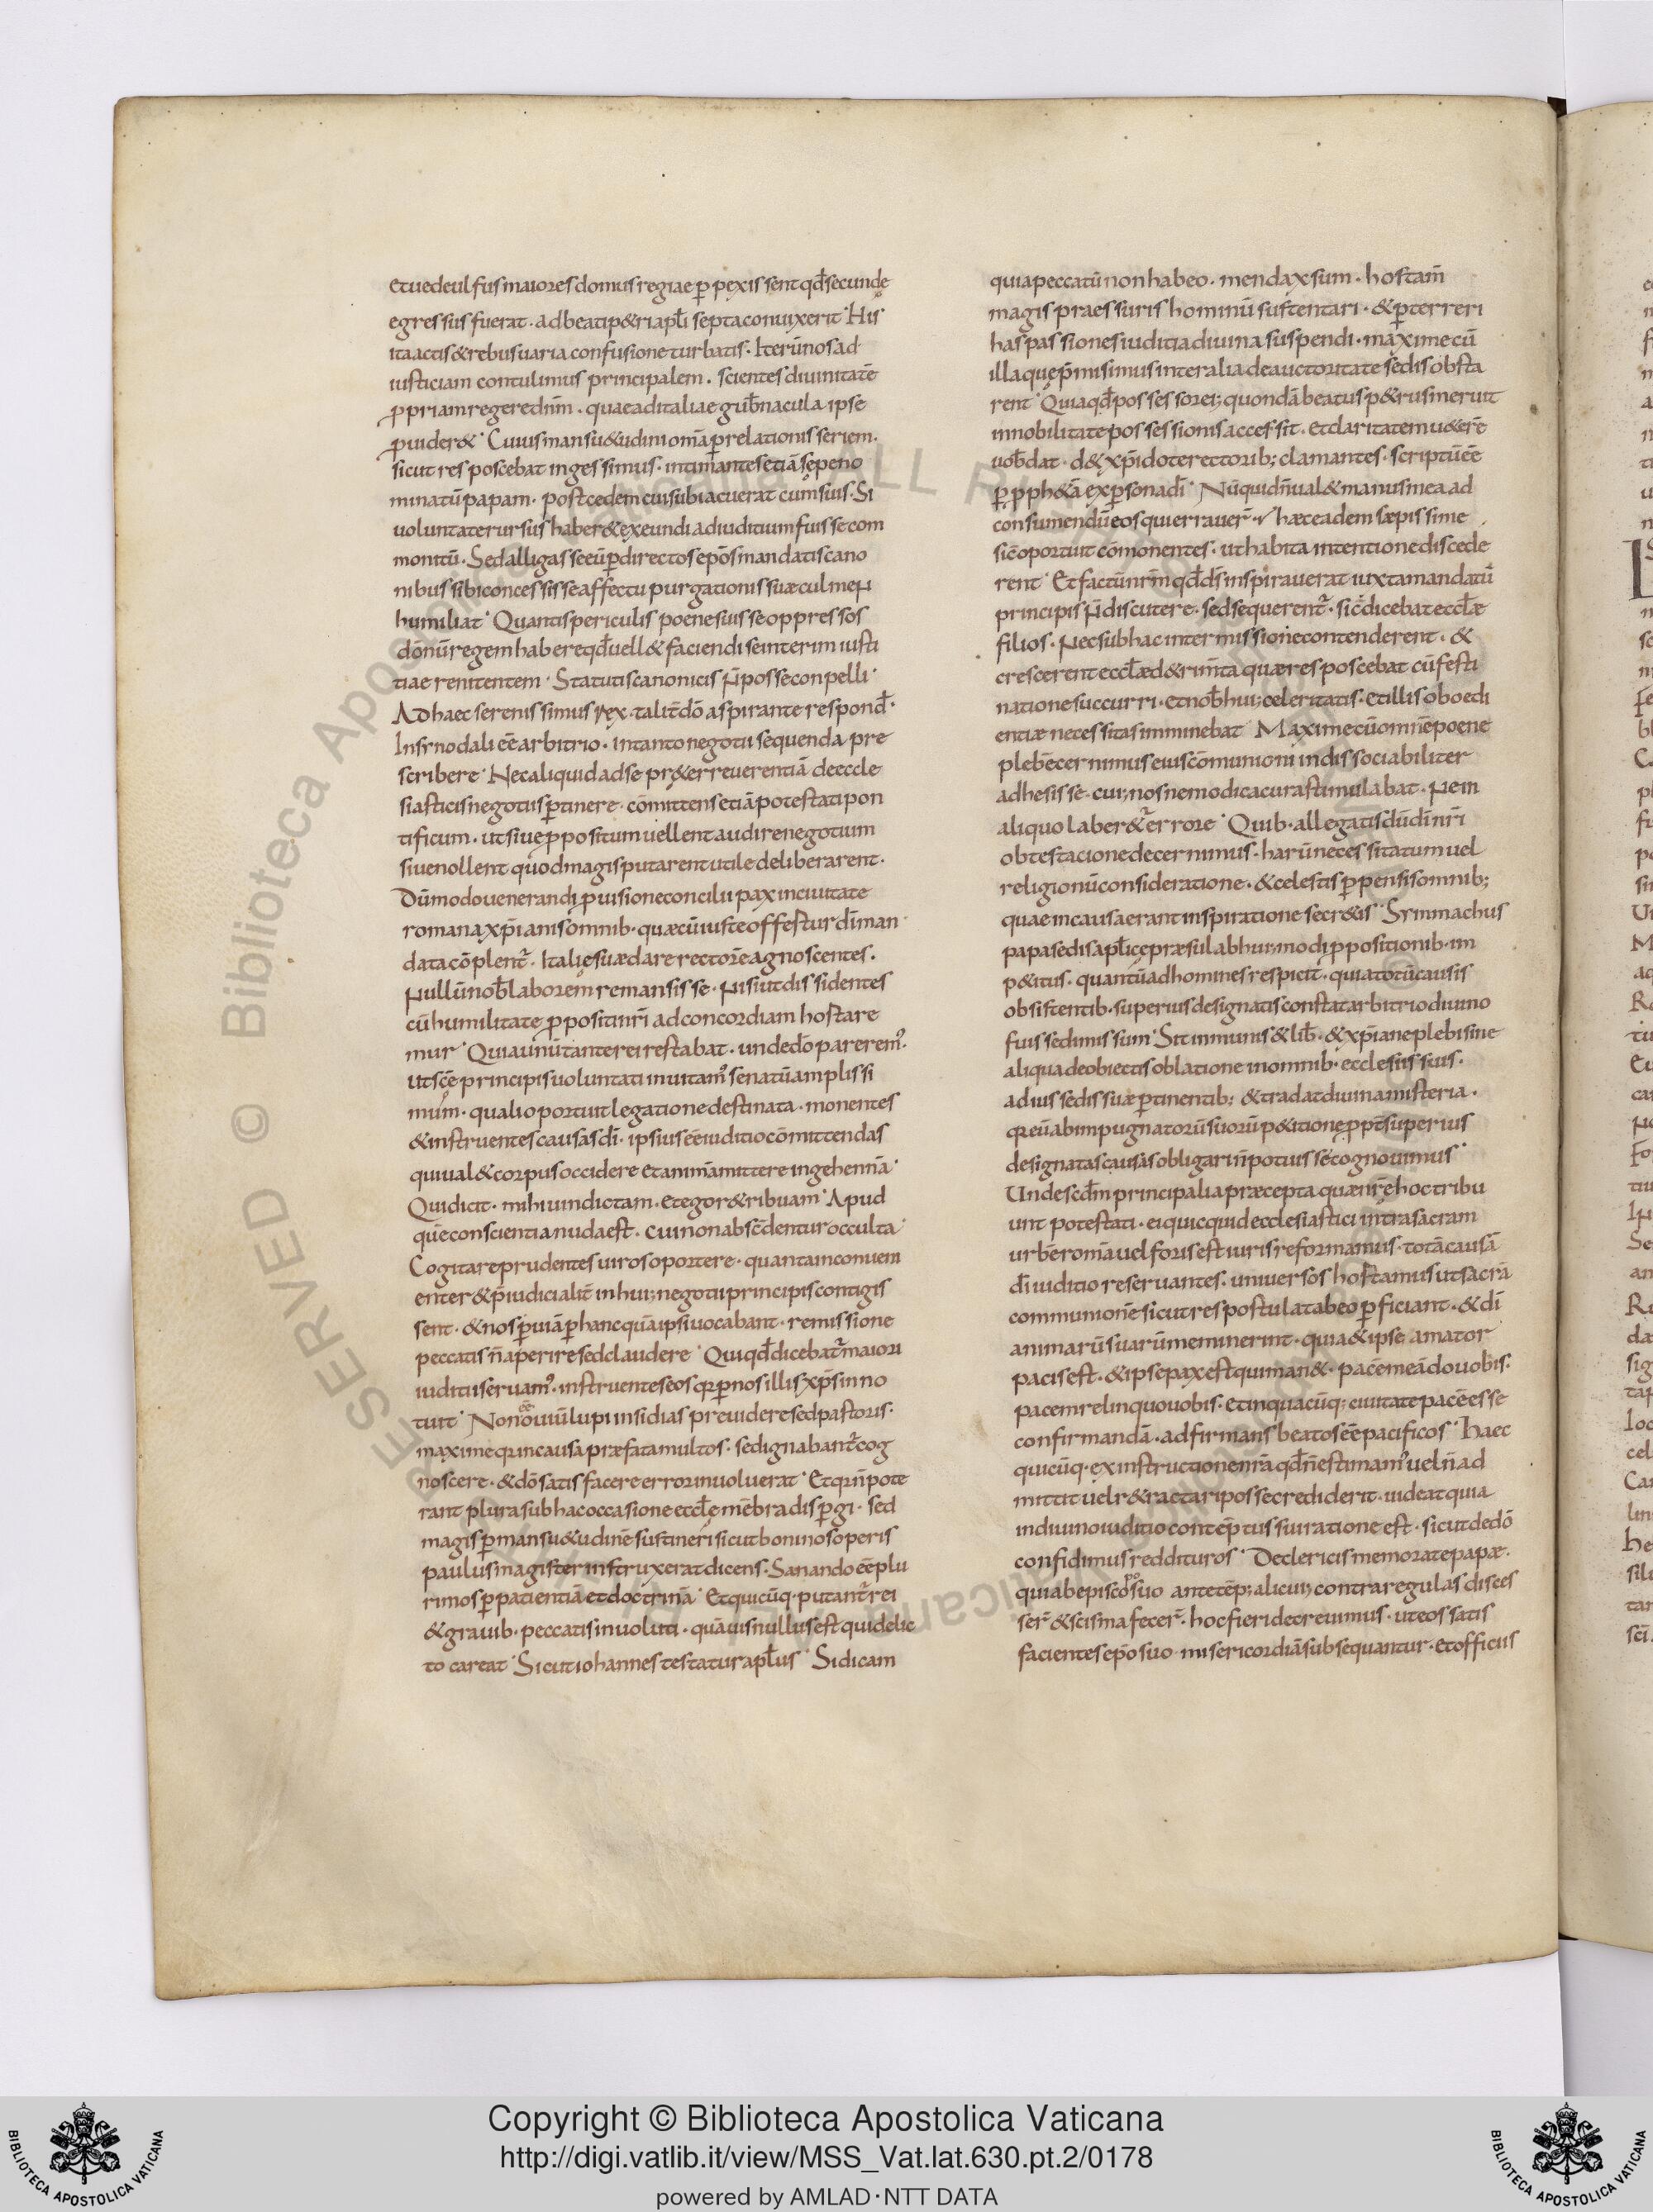 etuedeulfus maiores domus regiae p̱pexissent qd̄ secunde
egressus fuerat · ad beati p&ri apl̄i septa conuixerit · His
ita actis & rebus uaria confusione turbatis · Iterū nos ad
iusticiam contulimus principalem · scientes diuinitatē
ꝓpriam regere dn̄m · quae ad italiae gub̄nacula ipse
ꝓuider& · Cuius mansu&udini omā ꝑrelationis seriem ·
sicut res poscebat ingessimus · intimantes etiā sępe no
minatū papam · post cedem cui subiacuerat cum suis · Si
uoluntate rursus haber& exeundi ad iuditium fuisse com
monitū · Sed alligasse eū ꝑ directos ep̄os mandatis cano
nibus sibi concessisse affectu purgationis suæ culmen
humiliat · Quantis periculis poene suis se oppressos
dōnū regem habere qd̄ uell& faciendi se interim iusti
tiae renitentem · Statutis canonicis n̄ posse conpelli ·
Ad haec serenissimus rex · talit̄ dō aspirante respond̄ ·
In sr̄no dali eē arbitrio · in tanto negotii sequenda pre
scribere · Nec aliquid ad se pręter reuerentiā de eccle
siasticis negotiis ꝑtinere · cōmittens etiā potestati pon
tificum · ut siue ꝓpositum uellent audire negotium
siue nollent quod magis putarent utile deliberarent ·
Dū modo uenerandi ꝓuisione concilii pax in ciuitate
romana xp̄ianis omnib · quæ cū iuste offestur dī man
data cōplent᷑ · Italię suæ dare rectorē agnoscentes ·
Nullū nob̄ laborem remansisse · Nisi ut dissidentes
cū humilitate ꝓpositi nr̄i ad concordiam hostare
mur · Quia unū tanter ei restabat · unde dō parerem᷒ ·
ut sc̄e principis uoluntati inuitam᷒ senatū amplissi
mum · quali oportuit legatione destinata · monentes
& instruentes causas dī · ipsius eē iuditio cōmittendas
qui ual& corpus occidere et animā mittere in gehennā ·
Qui dicit · mihi uindictam · et ego r&ribuam · Apud
quē conscientia nuda est · cui non abscēdentur occulta ·
Cogitare prudentes uiros oportere · quanta inconueni
enter & p̄iudicialit̄ in hui; negotii principis contigis
sent · & nos ꝑ uiā ꝑ hanc quā ipsi uocabant · remissione
peccatis n̄ aperire sed claudere · Qui qd̄ dicebat᷑ maiori
iuditii seruam᷒ · instruentes eos qr̄ ꝑ nos illis xp̄s inno
tuit · Non ouiū eē lupi insidias preuidere sed pastoris ·
maxime qr̄ in causa præfata multos · se dignabant᷑ cog
noscere · & dō satisfacere error inuoluerat · Et qr̄ n̄ pote
rant plura sub hac occasione eccl̄ę mēbra disꝑgi · sed
magis ꝑ mansu&udinē sustineri sicut boni nos operis
paulus magister instruxerat dicens · Sanando eē plu
rimos ꝑ patientiā et doctrinā · Et quicūq · putant᷑ rei
& grauib · peccatis inuoluti · quāuis nullus est qui delic
to careat · Sicut iohannes testatur apl̄us · Si dicam
quia peccatū non habeo · mendax sum · hostam̄
magis praessuris hominū sustentari · & ꝑterreri
has passiones iuditia diuina suspendi · maxime cū
illa que p̄misimus inter alia de auctoritate sedis obsta
rent · Quia qd̄ possessor ei; quondā beatus p&rus meruit
in nobilitate possessionis accessit · et claritatem u&erē
uob̄ dat · d& xp̄i doterectorib; clamantes · scriptū eē
ꝑ ꝓph&ā ex ꝑsona dī · Nūquid n̄ ual& manus mea ad
consumendū eos qui errauer̄ · haec eadem sæpissime
sic̄ oportuit cōmonentes · ut habita intentione discede
rent · Et factū nr̄m qd̄ ds̄ inspirauerat iuxta mandatū
principis n̄ discutere · sed sequerent᷑ · sic̄ dicebat eccl̄æ
filios · Nec sub hac intermissione contenderent · &
crescerent eccl̄æ d&rimta quæ res poscebat cū festi
natione succurri · et nob̄ hui; celeritatis · et illis oboedi
entiæ necessitas imminebat · Maxime cū omnē poene
plebē cernimus eius cōmunioni indissociabiliter
adhesisse · cui; nos ne modica cura stimulabat · Ne in
aliquo laber&᷑ errore · Quib · allegatis cū dī nr̄i
obtestacione decernimus · harū necessitatum uel
religionū consideratione · & celestis ꝑpensis omnib;
quae in causa erant inspiratione secr&is · Symmachus
papa sedis apl̄icę præsul ab hui; modi ꝓpositionib · im
p&itus · quantū ad homines respicit · quia totū causis
obsistentib · superius designatis constat arbitrio diuino
fuisse dimissum · Sit inmunis & lib̄ · & xp̄iane plebi sine
aliqua de obiectis oblatione in omnib · ecclesiis suis ·
ad ius sedis suæ ꝑtinentib; & tradat diuina misteria ·
qr̄ eū ab impugnatorū suorū p&itione ꝓpt̄ superius
designatas causas obligari n̄ potuisse cognouimus ·
Unde scd̄m principalia præcepta quæ nr̄ę hoc tribu
unt potestati · ei quicquid ecclesiastici intra sacram
urbē romā uel foris est iuris reformamus · totā causā
dī iuditio reseruantes · uniuersos hostamus ut sacrā
communionē sicut res postulat ab eo ꝑficiant · & dī
animarū suarū meminerint · quia & ipse amator
pacis est · & ipse pax est qui man& · pacē meā do uobis ·
pacem relinquo uobis · et in quacūq; ciuitate pacē esse
confirmandā · adfirmans beatos eē pacificos · Haec
quicūq · ex instructione nr̄a qd̄ n̄ estimam᷒ uel n̄ ad
mittit uel r&ractari posse crediderit · uideat quia
in diuino iuditio contēptus sui ratione est · sicut de dō
confidimus reddituros · De clericis memorate papæ ·
qui ab episcopo suo antetēp; alicui; contra regulas disces
ser̄ & scisma fecer̄ · hoc fieri decreuimus · ut eos satis
facientes ep̄o suo misericordiā subsequantur · et officiis
Copyright © Biblioteca Apostolica Vaticana
http://digi.vatlib.it/view/MSS_Vat.lat.630.pt.2/0178
powered by AMLAD·NTT DATA